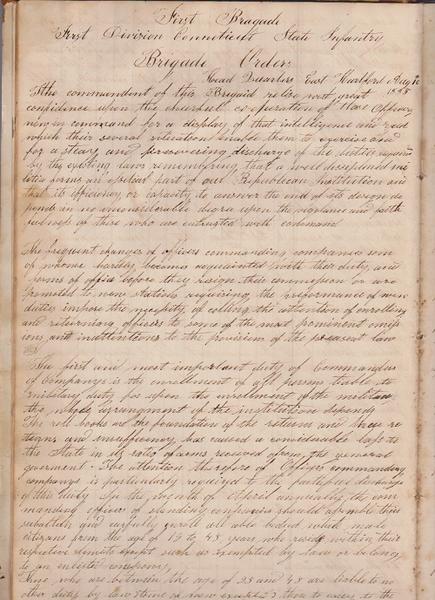 First Bragade
First Division Connecticut State Infantry
Brigade Orders
Head Quarters East Hartford Aug
The commandent of this Brigaid relies with great
confidence upon the cheerful co-operation of the Officers
now in command for a display of that intelligence and zeal
which their several situations enable them to exercise and
for a steady and persevering discharge of the duties required
by the existing laws remembering that a well disciplined mi
litia forms an part of our Republican institution and
that its efficiency or capacity to answer the end of its design de
pends in no inconsiderable degree upon the vigilance and faith
fulness of those who are entrusted with command
The frequent changes of officers commanding companies some
of whome hardly becomes acquainted with their duty and
forms of office before they resign their commission or are
promoted to new stations requiring the performance of new
duties impose the necessity of calling the attention of enrolling
and returning officers to some of the most prominent omis
ions and inattentions to the provision of the present law
The first and most important duty of Commandes
of Companys is the enrollment of all persons liable to
military duty for upon the enrollment of the militia
the whole arrangment of the institution depends
The roll books are the foundation of the return and
and insufficiency has caused a considerable loss to
the State in its ratio of arms received from the general
goverment. The attention therefore of Officers commanding
companys is particularly required to the faithful discharge
of this duty. In the month of April annually the com
manding officers of standing companies should assemble their
subalterns and carfully enroll all able bodied white male
citizens from the age of 18 to 45 years who reside within their
respective except such as exempted by law or belong
to an company
Those who are between the age of and 45 are liable to no
other duties by law